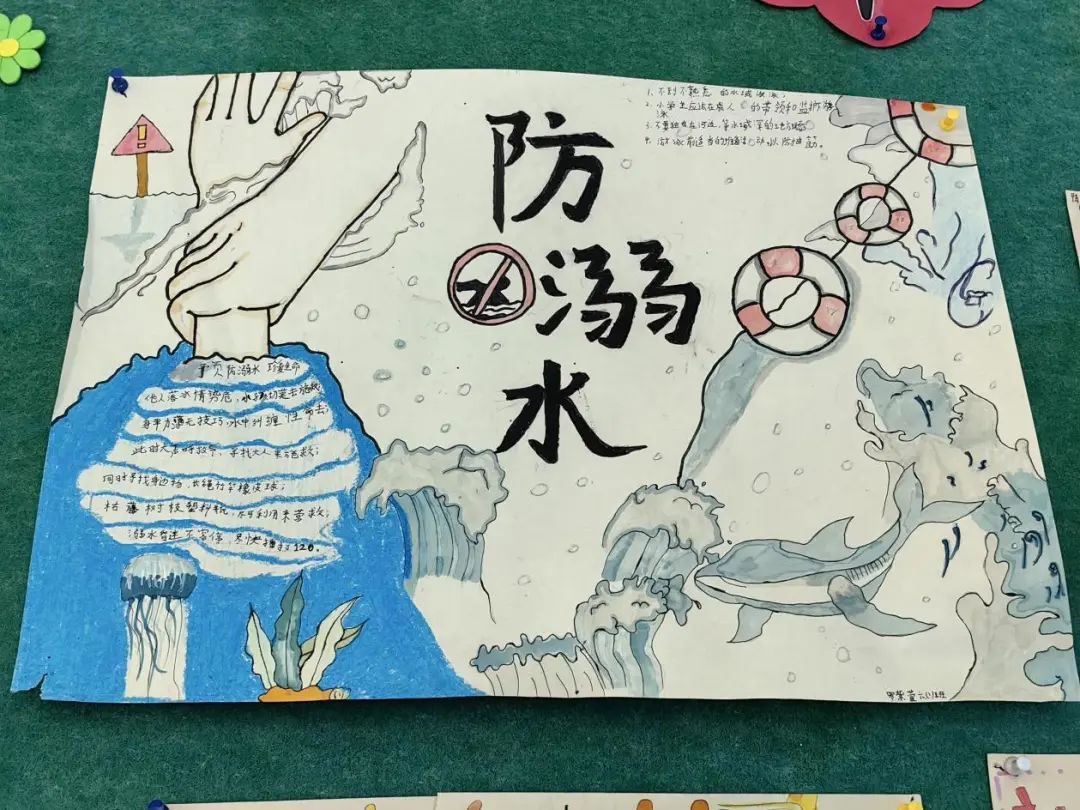 防
溺
水
1、不到不熟悉的水域游泳;
2、小学生应该在家人的带领和监护游
泳
3、不要独自在河边、等水域深的地方
4、游泳前适当的准备活动以防抽筋。
预防溺水 珍爱生命
他人落水情势危,水切莫去施救
身单力薄无技巧,水中纠缠性命去;
此时大声呼救命,寻找大人来施救;
同时寻找身边物,长绳竹竿橡皮球;
枯藤树枝塑料瓶,尽可利用来营救;
溺水昏迷不容停,尽快拨打120。